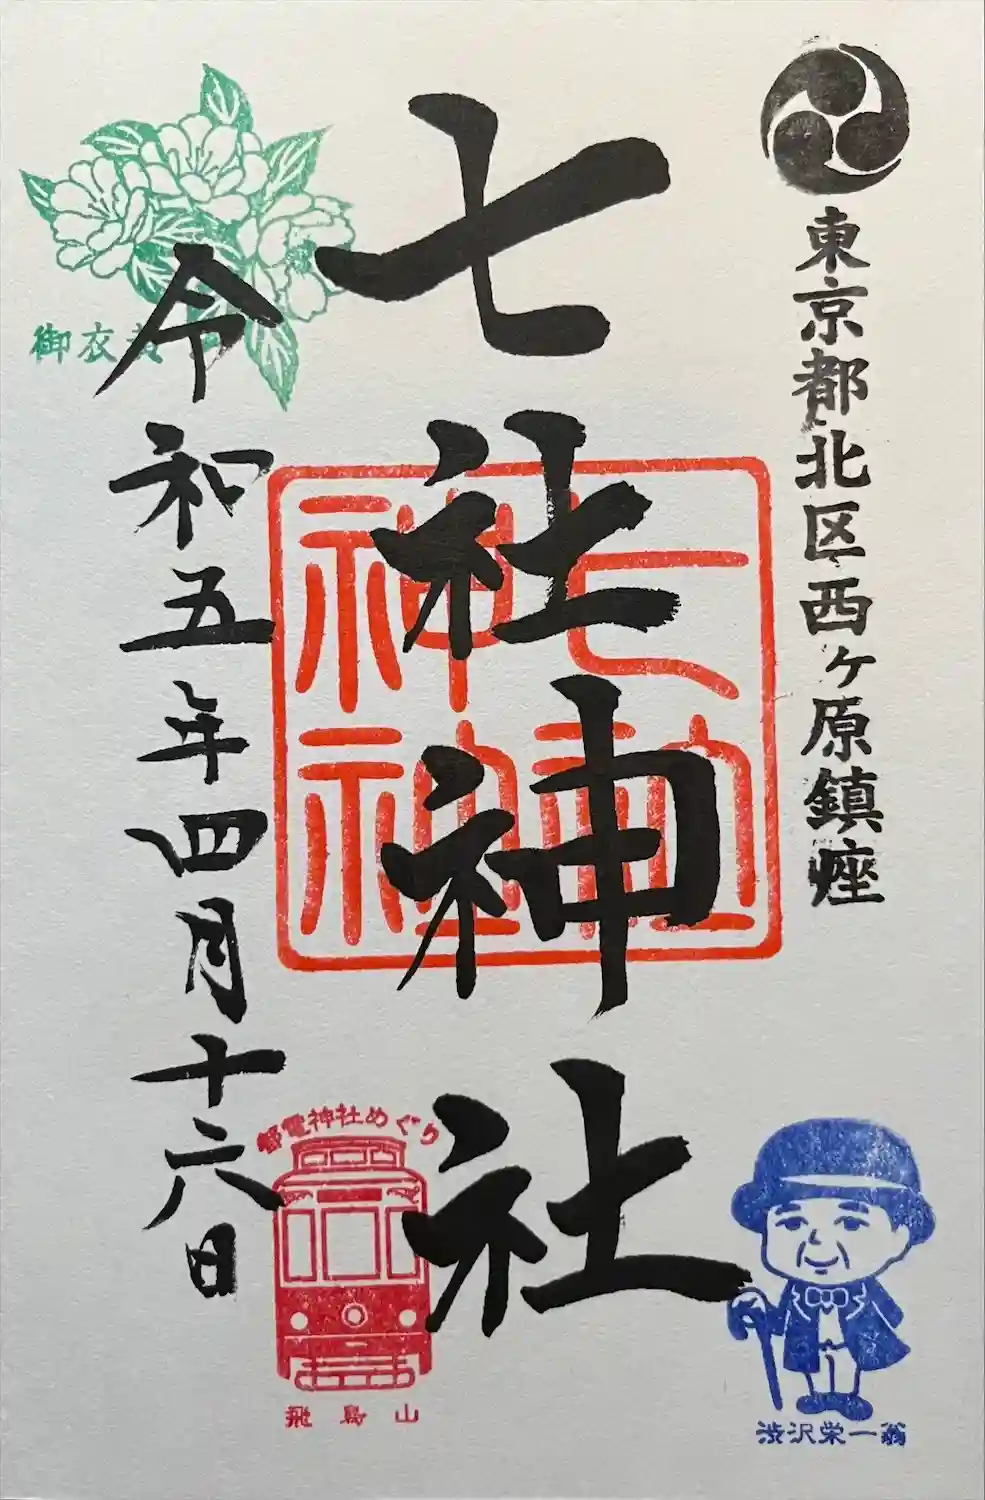 東京都北区西ヶ原鎮座
七社神社
七社
神社
令和五年四月十六日
御衣黄
都電神社めぐり
飛鳥山
渋沢栄一翁